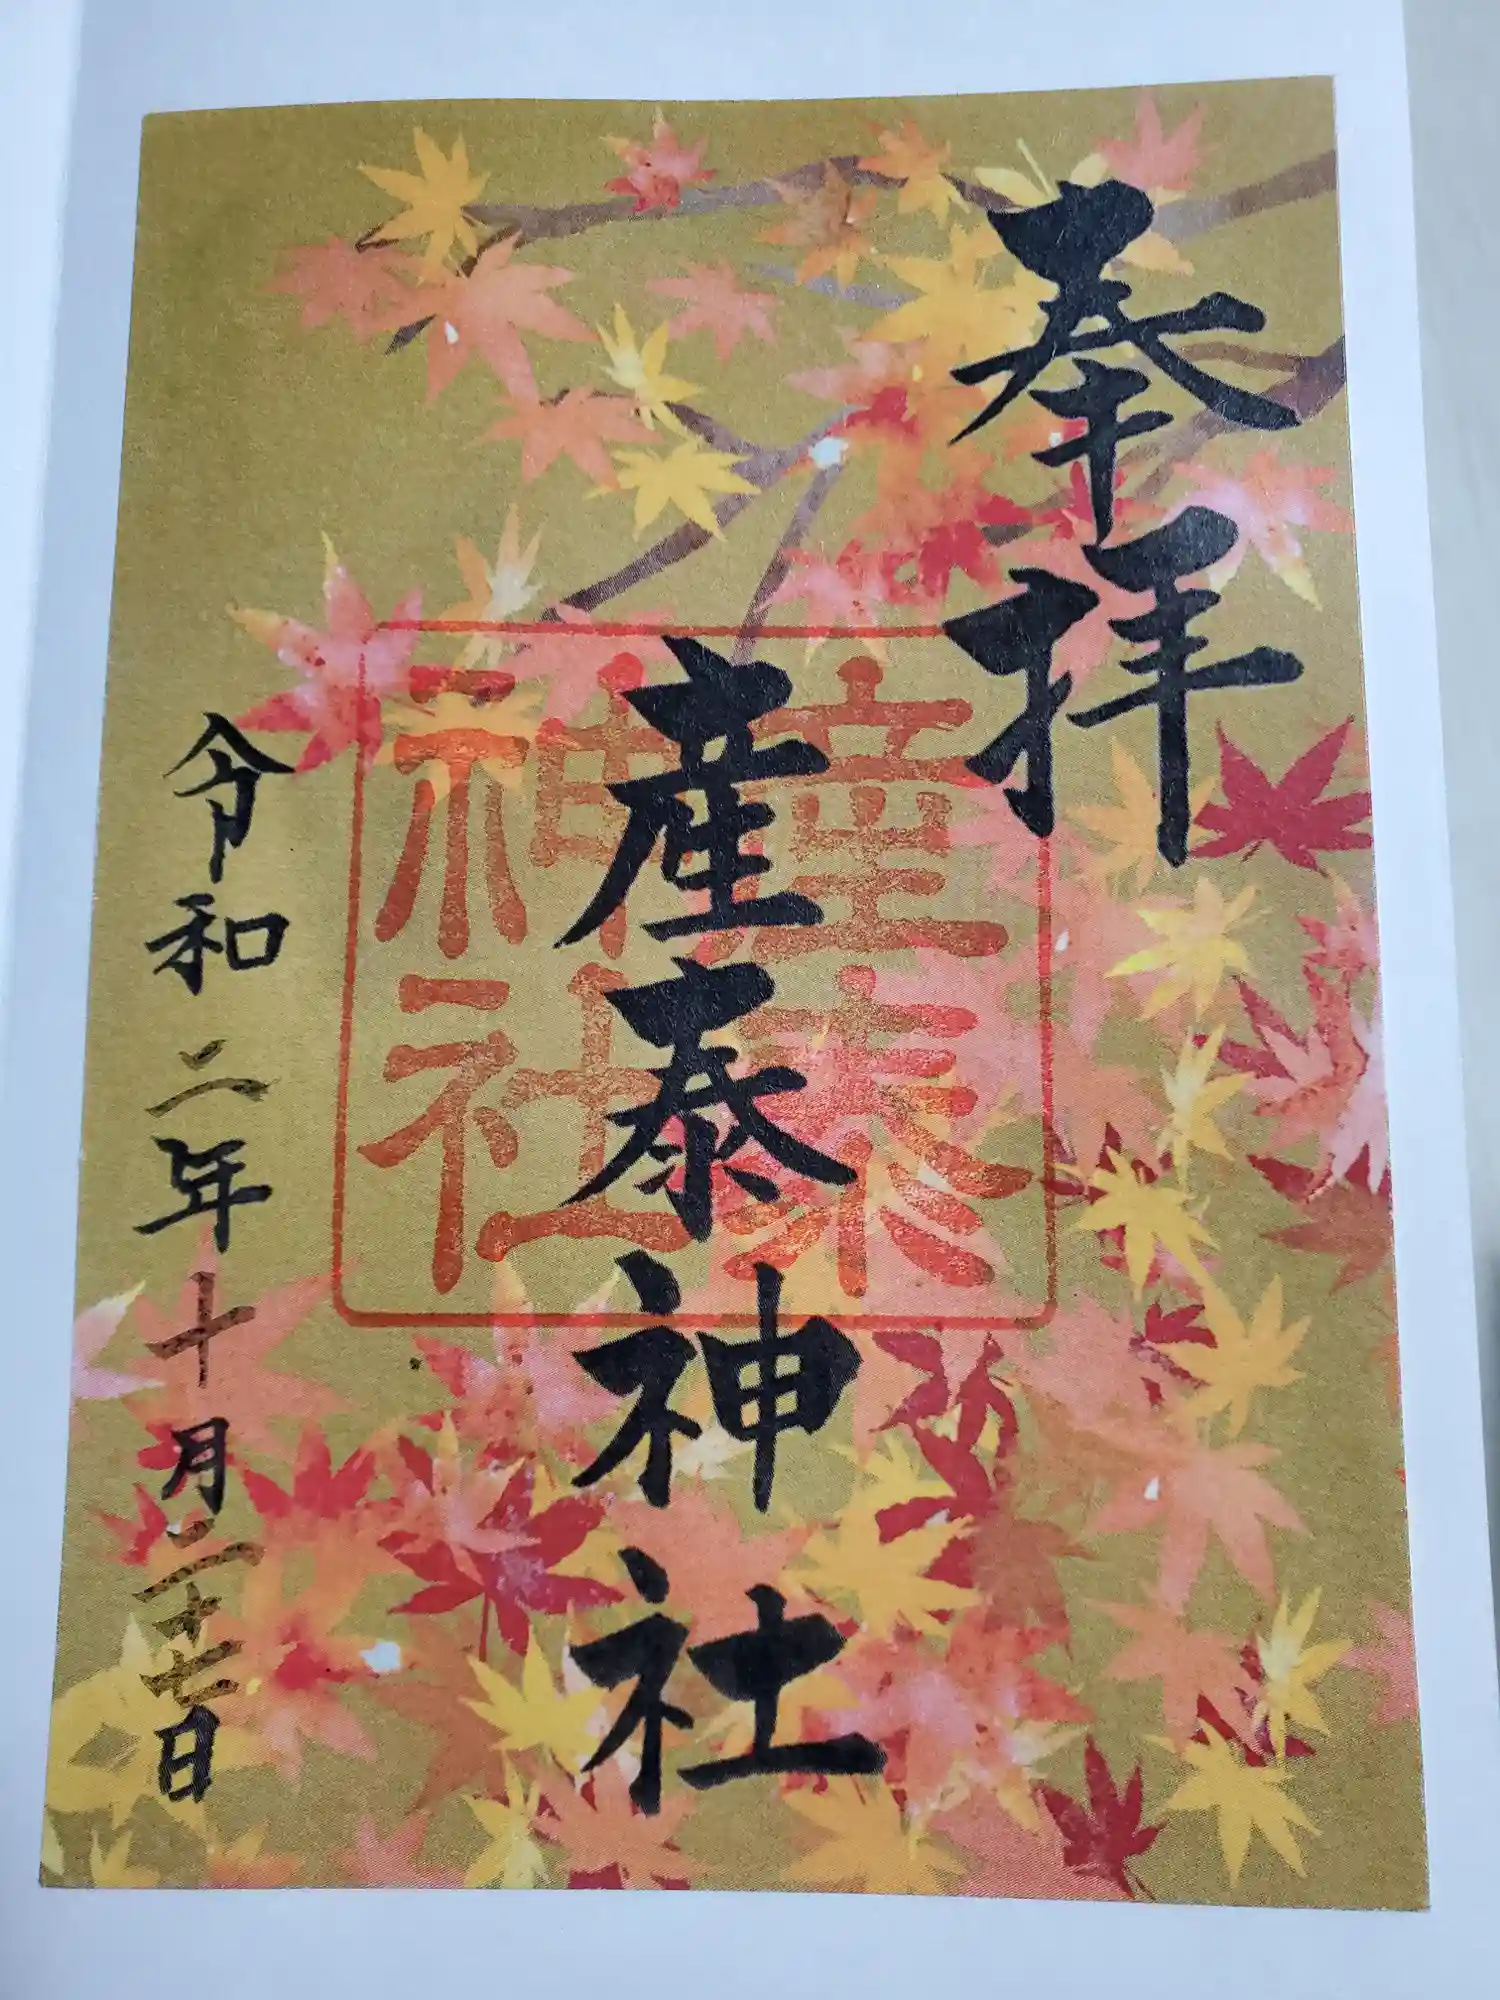 奉拝
産泰神社
産泰
神社
令和二年十月二十七日